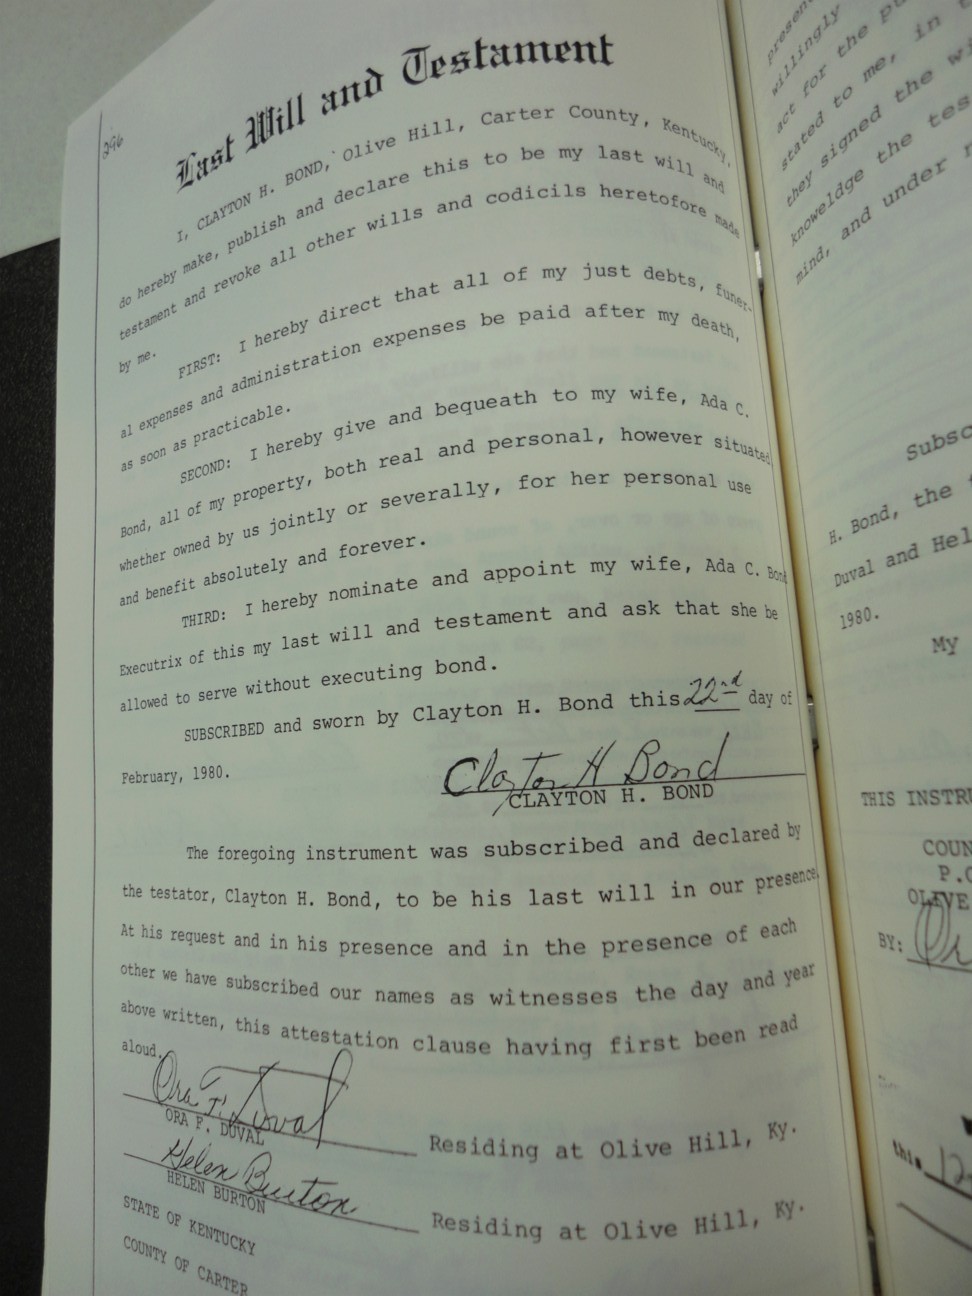 296
Last Will and Testament
I, CLAYTON H. BOND, Olive Hill, Carter County, Kentucky,
do hereby make, publish and declare this to be my last will and
testament and revoke all other wills and codicils heretofore made
by me.
FIRST: I hereby direct that all of my just debts, funer-
al expenses and administration expenses be paid after my death,
as soon as practicable.
SECOND: I hereby give and bequeath to my wife, Ada C.
Bond, all of my property, both real and personal, however situated
whether owned by us jointly or severally, for her personal use
and benefit absolutely and forever.
THIRD: I hereby nominate and appoint my wife, Ada C. Bond
Executrix of this my last will and testament and ask that she be
allowed to serve without executing bond.
SUBSCRIBED and sworn by Clayton H. Bond this 22nd day of
February, 1980.
Clayton H Bond
CLAYTON H. BOND
The foregoing instrument was subscribed and declared by
the testator, Clayton H. Bond, to be his last will in our presence.
At his request and in his presence and in the presence of each
other we have subscribed our names as witnesses the day and year
above written, this attestation clause having first been read
aloud.
Ora F. Duval
ORA F. DUVAL Residing at Olive Hill, Ky.
Helen Burton
HELEN BURTON Residing at Olive Hill, Ky.
STATE OF KENTUCKY
COUNTY OF CARTER
presen
willingly
act for the pu
stated to me, in t
they signed the wi
knoweldge the tes
mind, and under n
Subsc
H. Bond, the t
Duval and Hel
1980.
My
THIS INSTRU
COUN
P.O
OLIVE
BY:
this 12